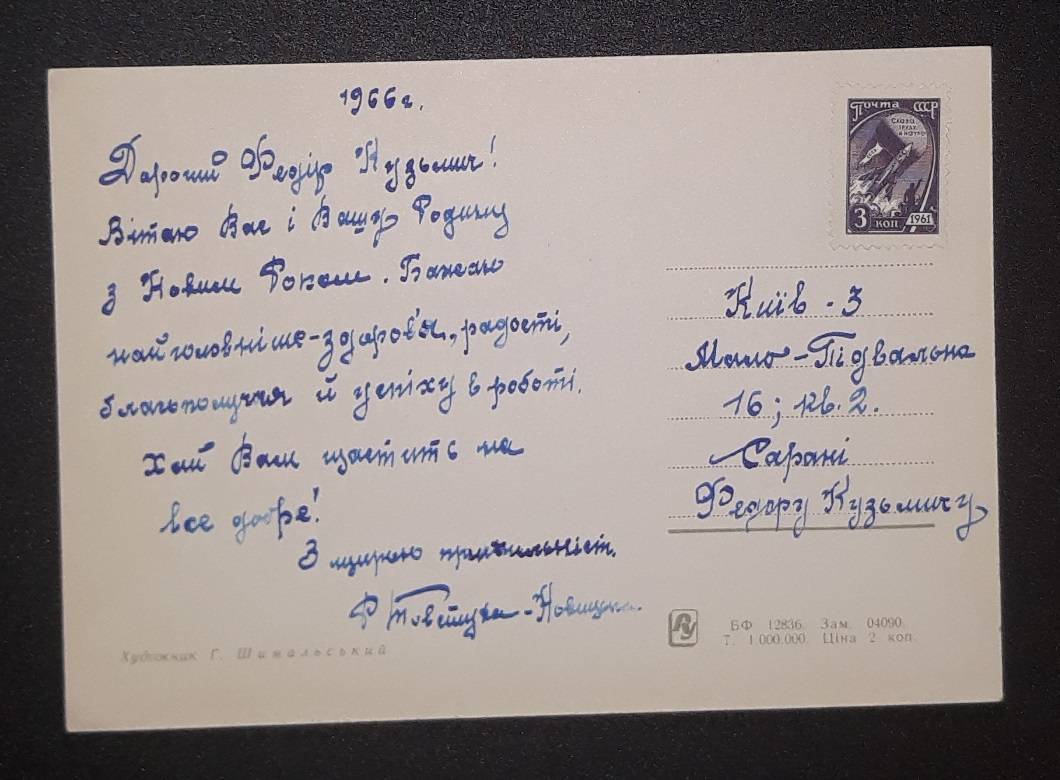 1966г.
Дорогий Федір Кузьмич!
Вітаю Вас і Вашу Родину
з Новим Роком. Бажаю
найголовніше-здоров'я, радості,
благополуччя й успіху в роботі.
Хай Вам щастить на
все добре!
З щирою
Р Товстуха-Новицька.
Художник Г. Шитальський
Почта СССР
СЛАВА
ТРУДУ
И НАУКЕ
3 коп 1961
Київ - 3
Мало-Підвальна
16; кв. 2.
Сарані
Федору Кузьмичу
БФ 12836. Зам. 04090.
Т. 1.000.000. Ціна 2 коп.